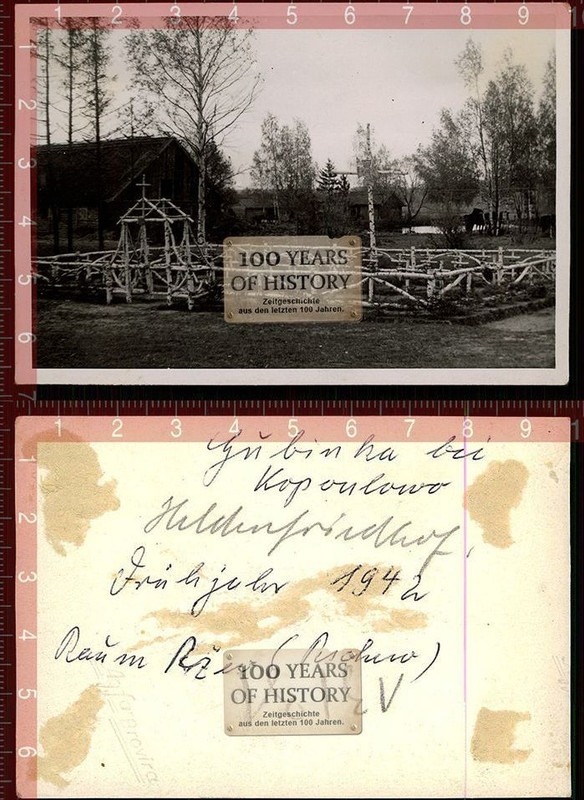 1 2 3 4 5 6 7 8 9
2
3
4
5
6
7
100 YEARS
OF HISTORY
Zeitgeschichte
aus den letzten 100 Jahren.
1 2 3 4 5 6 7 8 9
1
2
3
4
5
6
Gubinka bei
Kopoulowo
Heldenfriedhof,
Frühjahr 1942
Raum Ržew (Rschew)
100 YEARS
OF HISTORY
Zeitgeschichte
aus den letzten 100 Jahren.
V